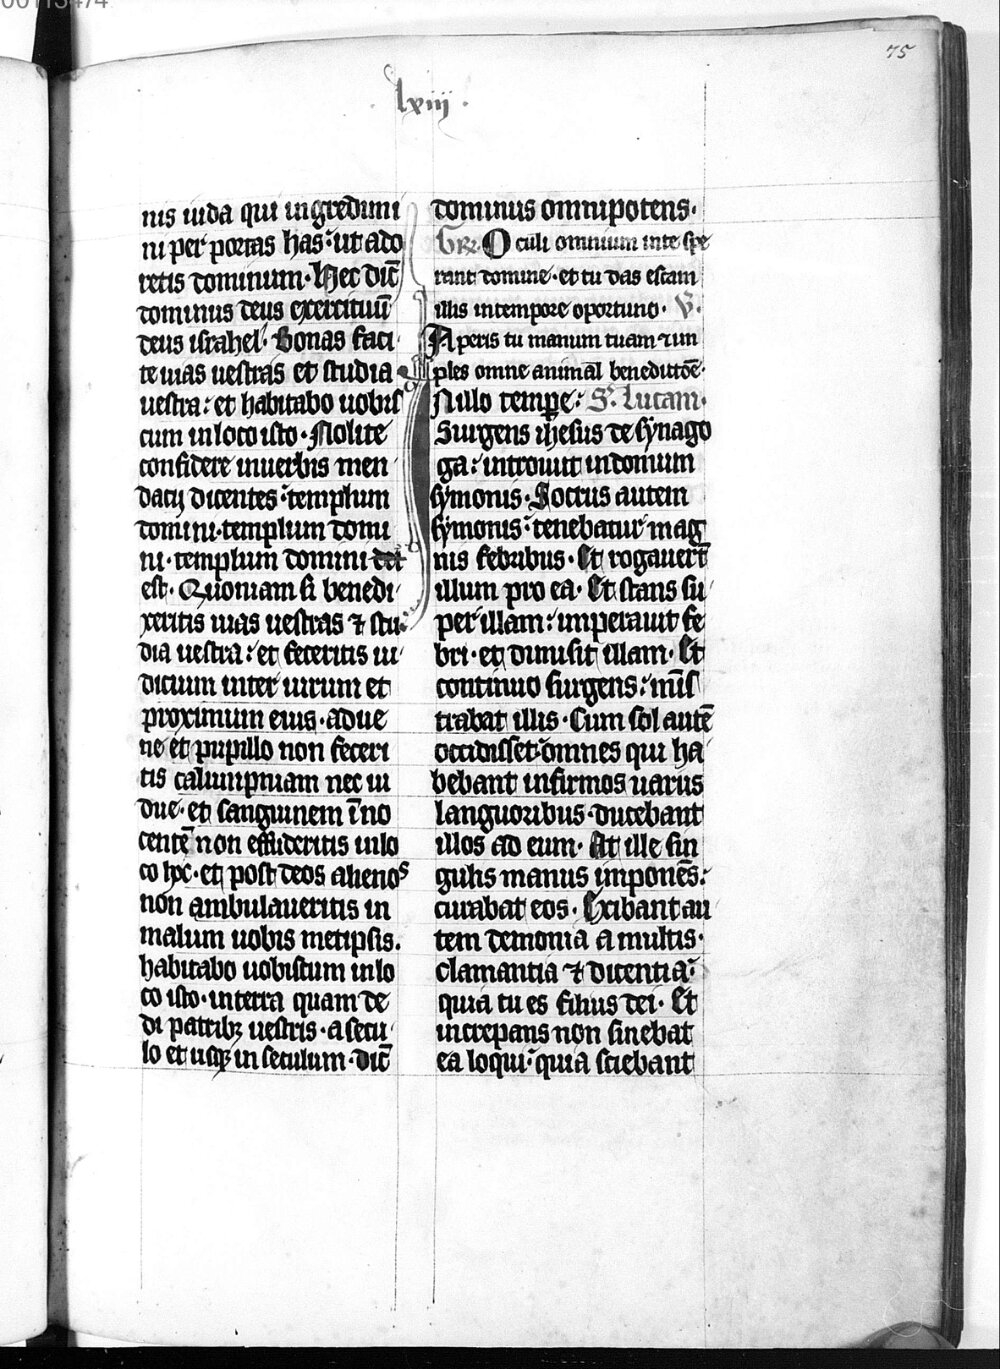 75
lxiij.
nis iuda qui ingredimi
ni per portas has: ut ado
retis dominum. Hec dic̄
dominus deus exercituū
deus israhel. Bonas faci
te uias uestras et studia
uestra: et habitabo uobis
cum in loco isto. Nolite
confidere in uerbis men
dacij dicentes: templum
domini. templum domi
ni. templum domini
est. Quoniam si benedi
xeritis uias uestras ⁊ stu
dia uestra: et feceritis iu
dicium inter uirum et
proximum eius. adue
ne et pupillo non feceri
tis calumpniam nec ui
due. et sanguinem īno
centē non effuderitis in lo
co hoc. et post deos alienos
non ambulaueritis in
malum uobis metipsis.
habitabo uobiscum in lo
co isto. in terra quam de
di patribꝫ uestris. a secu
lo et usqꝫ in seculum. dic̄
dominus omnipotens.
Gr̄. Oculi omnium in te spe
rant domine. et tu das escam
illis in tempore oportuno. V.
Aperis tu manum tuam ⁊ im
ples omne animal benedictōe.
In illo tempe: S. Lucam.
Surgens ihesus de synago
ga: introiuit in domum
symonis. Socrus autem
symonis: tenebatur mag
nis febribus. Et rogauerūt
illum pro ea. Et stans su
per illam: imperauit fe
bri. et dimisit illam. Et
continuo surgens: minis
trabat illis. Cum sol autē
occidisset: omnes qui ha
bebant infirmos uariis
languoribus. ducebant
illos ad eum. At ille sin
gulis manus imponēs:
curabat eos. Exibant au
tem demonia a multis.
clamantia ⁊ dicentia:
quia tu es filius dei. Et
increpans non sinebat
ea loqui: quia sciebant